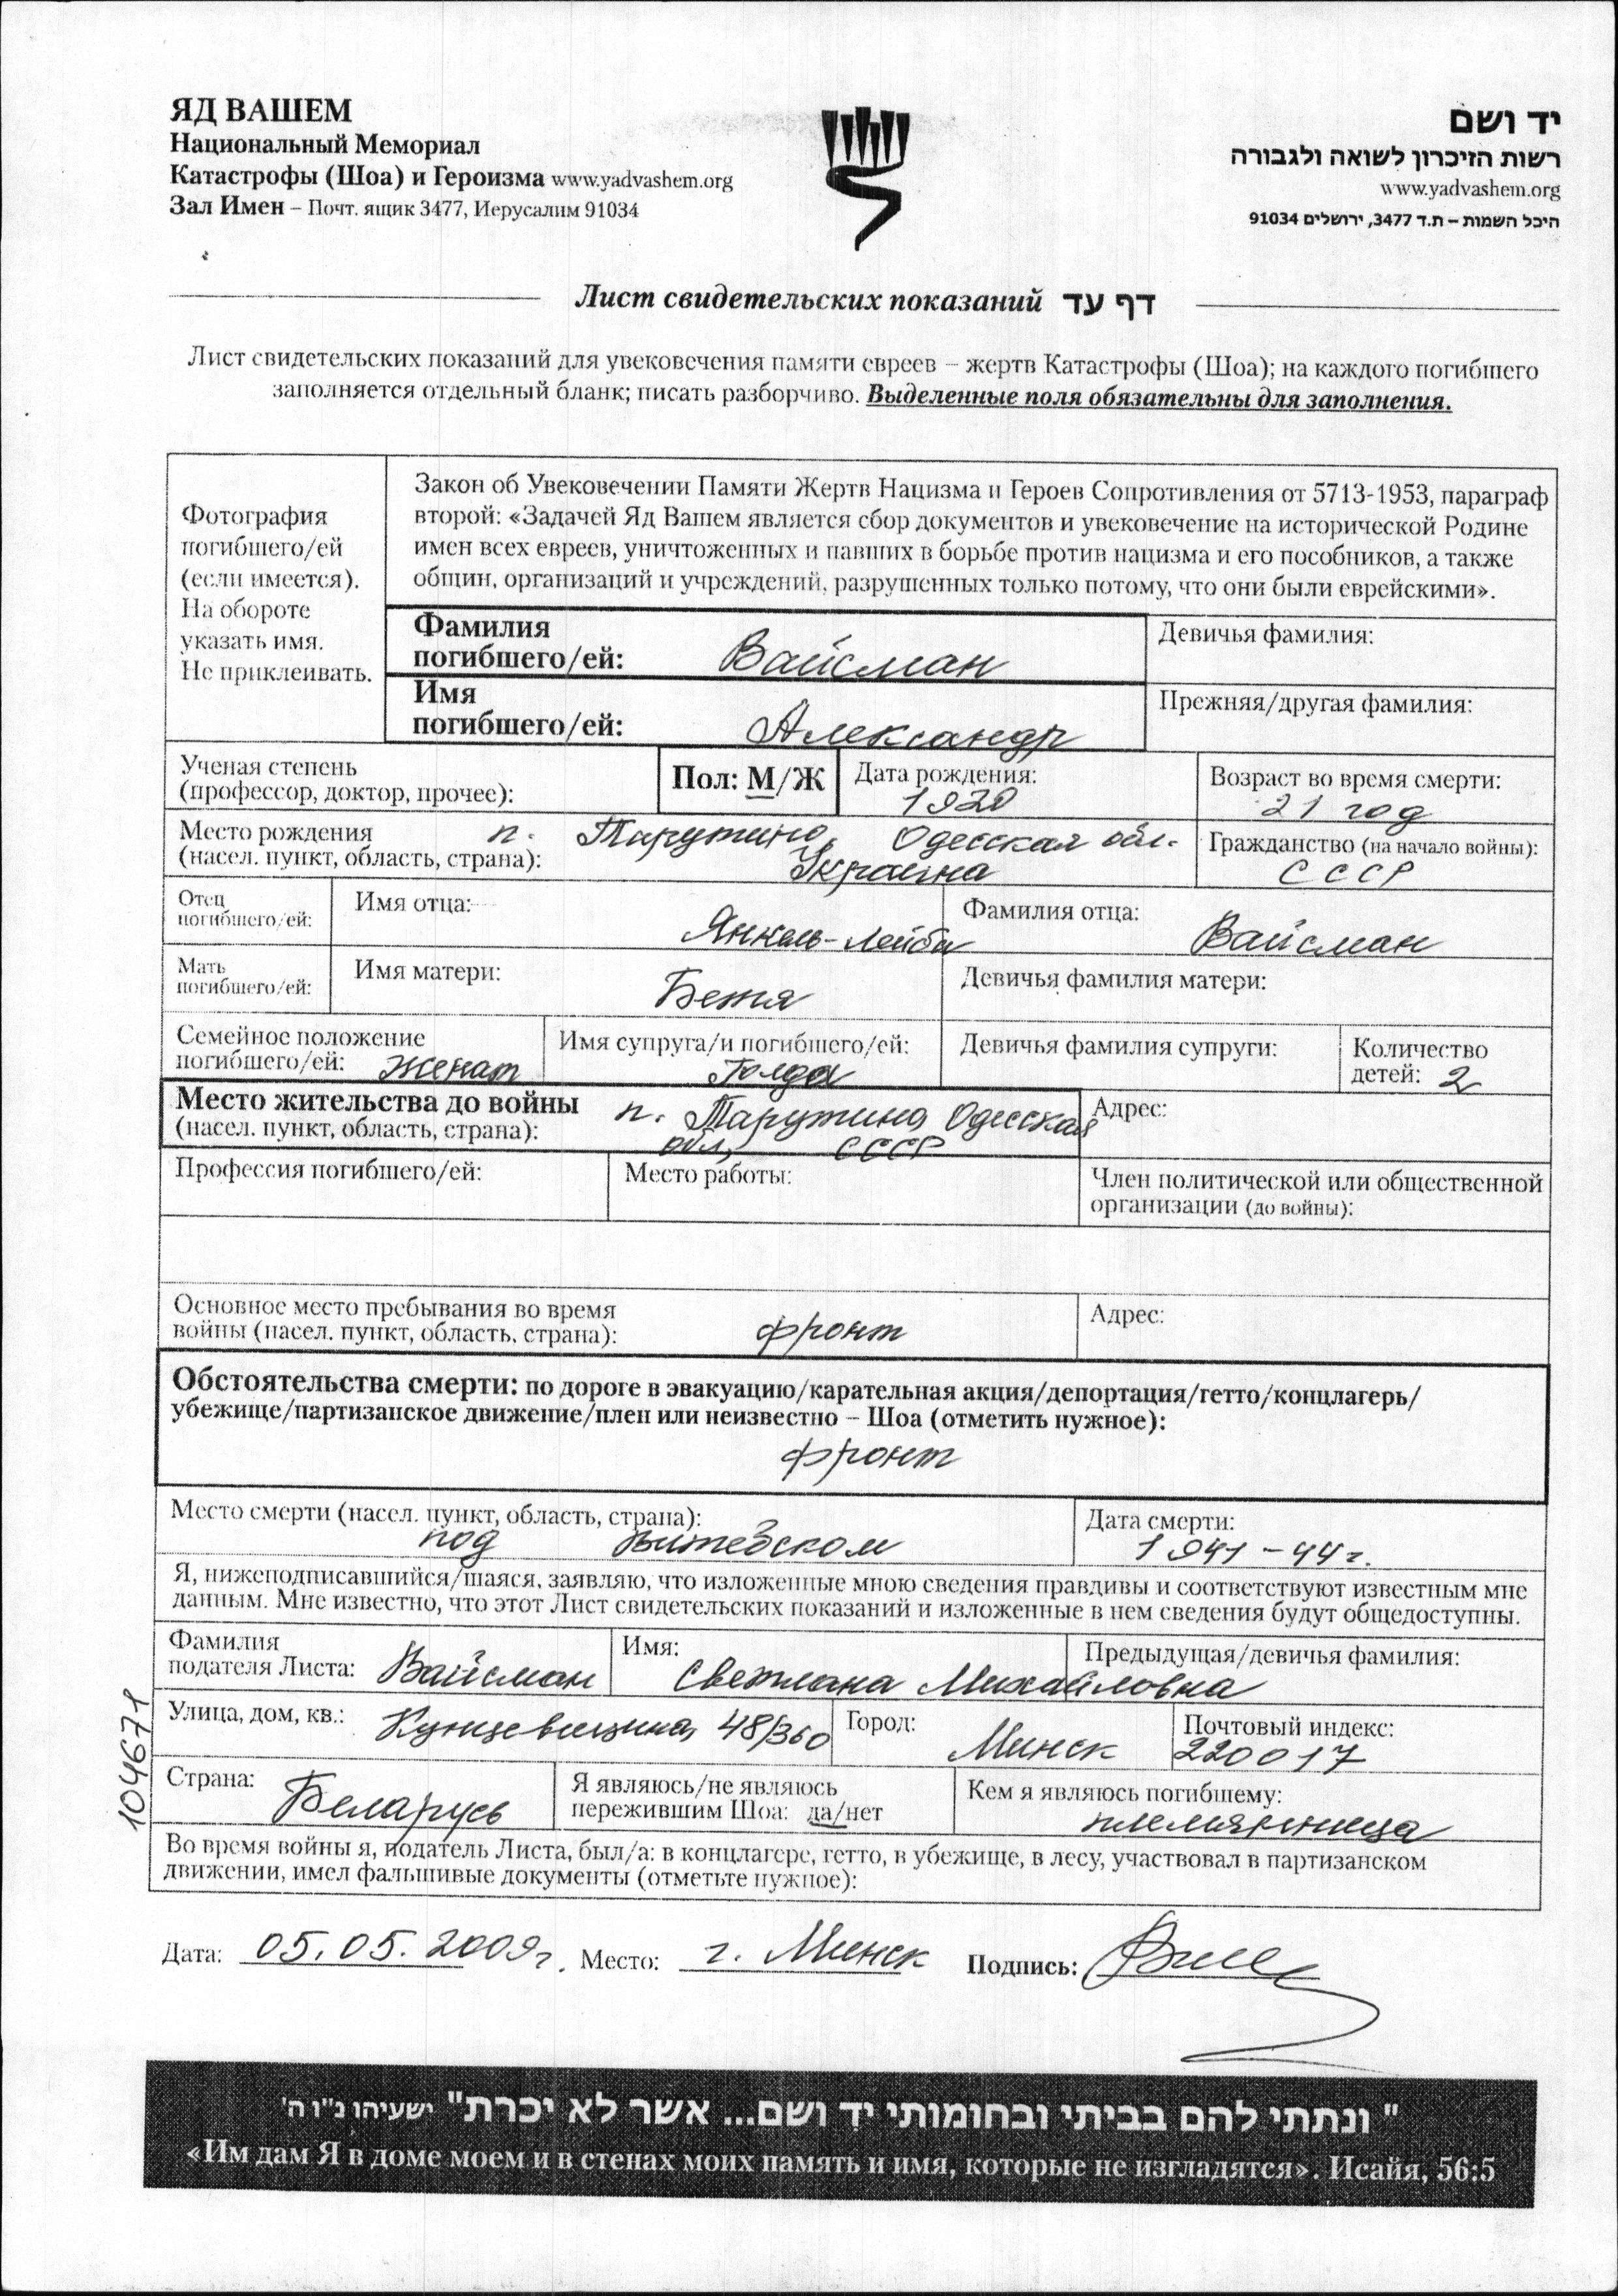 ЯД ВАШЕМ
Национальный Мемориал
Катастрофы (Шоа) и Героизма www.yadvashem.org
Зал Имен – Почт. ящик 3477, Иерусалим 91034
יד ושם
רשות הזיכרון לשואה ולגבורה
www.yadvashem.org
היכל השמות – ת.ד 3477, ירושלים 91034
Лист свидетельских показаний דף עד
Лист свидетельских показаний для увековечения памяти евреев – жертв Катастрофы (Шоа); на каждого погибшего
заполняется отдельный бланк; писать разборчиво. Выделенные поля обязательны для заполнения.
Фотография
погибшего/ей
(если имеется).
На обороте
указать имя.
Не приклеивать.
Закон об Увековечении Памяти Жертв Нацизма и Героев Сопротивления от 5713-1953, параграф
второй: «Задачей Яд Вашем является сбор документов и увековечение на исторической Родине
имен всех евреев, уничтоженных и павших в борьбе против нацизма и его пособников, а также
общин, организаций и учреждений, разрушенных только потому, что они были еврейскими».
Фамилия
погибшего/ей: Вайсман
Девичья фамилия:
Имя
погибшего/ей: Александр
Прежняя/другая фамилия:
Ученая степень
(профессор, доктор, прочее):
Пол: М/Ж
Дата рождения:
1920
Возраст во время смерти:
21 год
Место рождения п. Тарутино, Одесская обл.
(насел. пункт, область, страна): Украина
Гражданство (на начало войны):
СССР
Отец
погибшего/ей:
Имя отца:
Янкель-Лейба
Фамилия отца:
Вайсман
Мать
погибшего/ей:
Имя матери:
Бетя
Девичья фамилия матери:
Семейное положение
погибшего/ей: женат
Имя супруга/и погибшего/ей:
Голда
Девичья фамилия супруги:
Количество
детей: 2
Место жительства до войны п. Тарутино, Одесская
(насел. пункт, область, страна): обл, СССР
Адрес:
Профессия погибшего/ей:
Место работы:
Член политической или общественной
организации (до войны):
Основное место пребывания во время
войны (насел. пункт, область, страна): фронт
Адрес:
Обстоятельства смерти: по дороге в эвакуацию/карательная акция/депортация/гетто/концлагерь/
убежище/партизанское движение/плен или неизвестно – Шоа (отметить нужное):
фронт
Место смерти (насел. пункт, область, страна):
под Витебском
Дата смерти:
1941-44 г.
Я, нижеподписавшийся/шаяся, заявляю, что изложенные мною сведения правдивы и соответствуют известным мне
данным. Мне известно, что этот Лист свидетельских показаний и изложенные в нем сведения будут общедоступны.
Фамилия
подателя Листа: Вайсман
Имя:
Светлана Михайловна
Предыдущая/девичья фамилия:
Улица, дом, кв.: Кунцевщина, 48/360
Город:
Минск
Почтовый индекс:
220017
Страна:
Беларусь
Я являюсь/не являюсь
пережившим Шоа: да/нет
Кем я являюсь погибшему:
племянница
Во время войны я, податель Листа, был/а: в концлагере, гетто, в убежище, в лесу, участвовал в партизанском
движении, имел фальшивые документы (отметьте нужное):
104671
Дата: 05.05.2009г. Место: г. Минск Подпись:
" ונתתי להם בביתי ובחומותי יד ושם... אשר לא יכרת" ישעיהו נ"ו ה'
«Им дам Я в доме моем и в стенах моих память и имя, которые не изгладятся». Исайя, 56:5